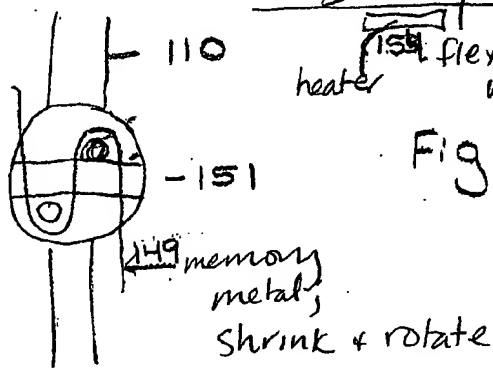 110
154 flex
heater
Fig
-151
149 memory
metal;
shrink + rotate